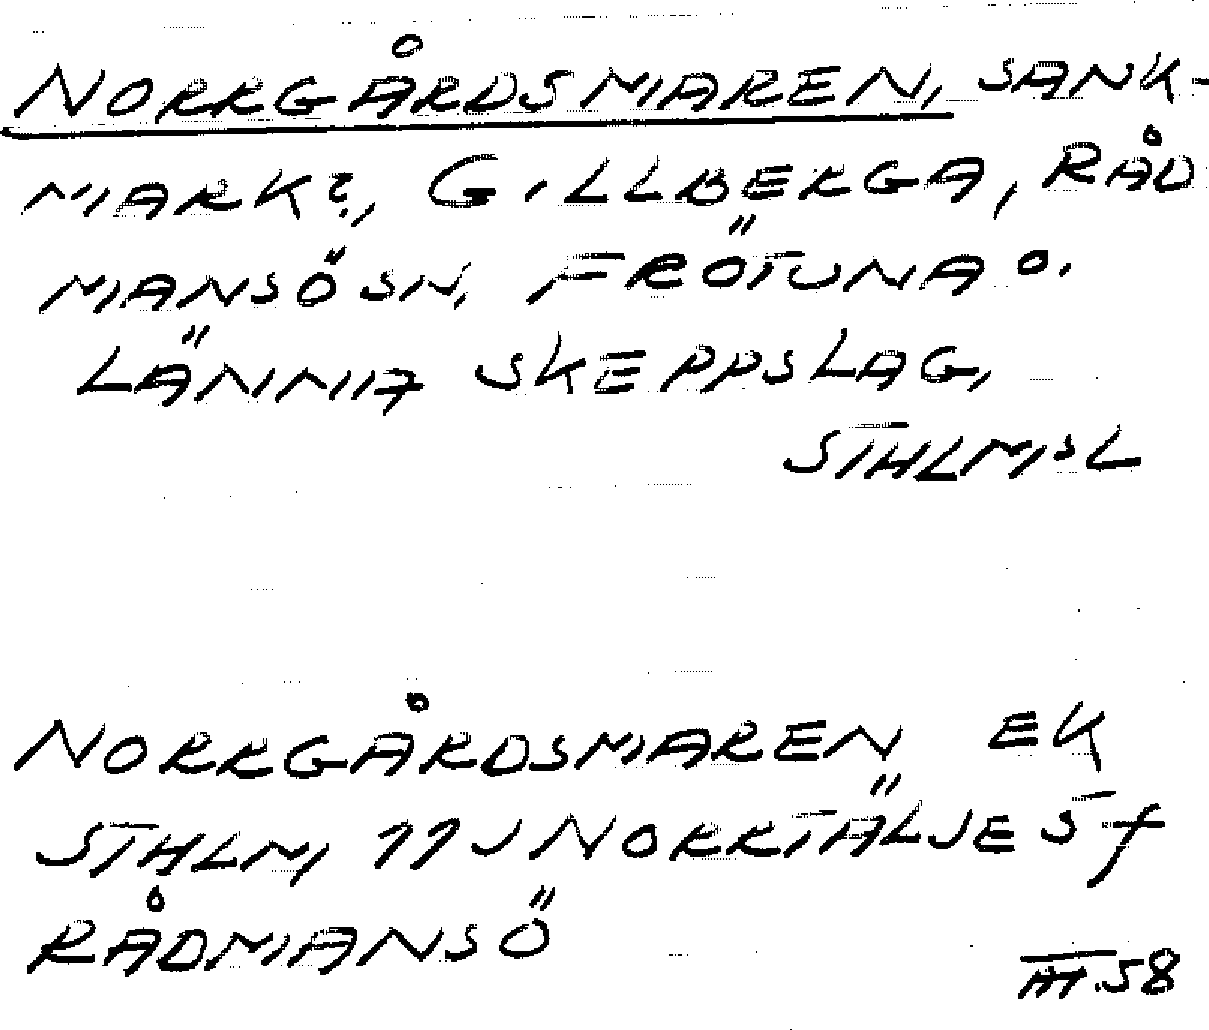 NORRGÅRDSMAREN, SANK-
MARK?, GILLBERGA, RÅD
MANSÖ SN, FRÖTUNA O.
LÄNNA SKEPPSLAG,
STHLMS L
NORRGÅRDSMAREN EK
STHLM, 11 J NORRTÄLJE S f
RÅDMANSÖ
III.58